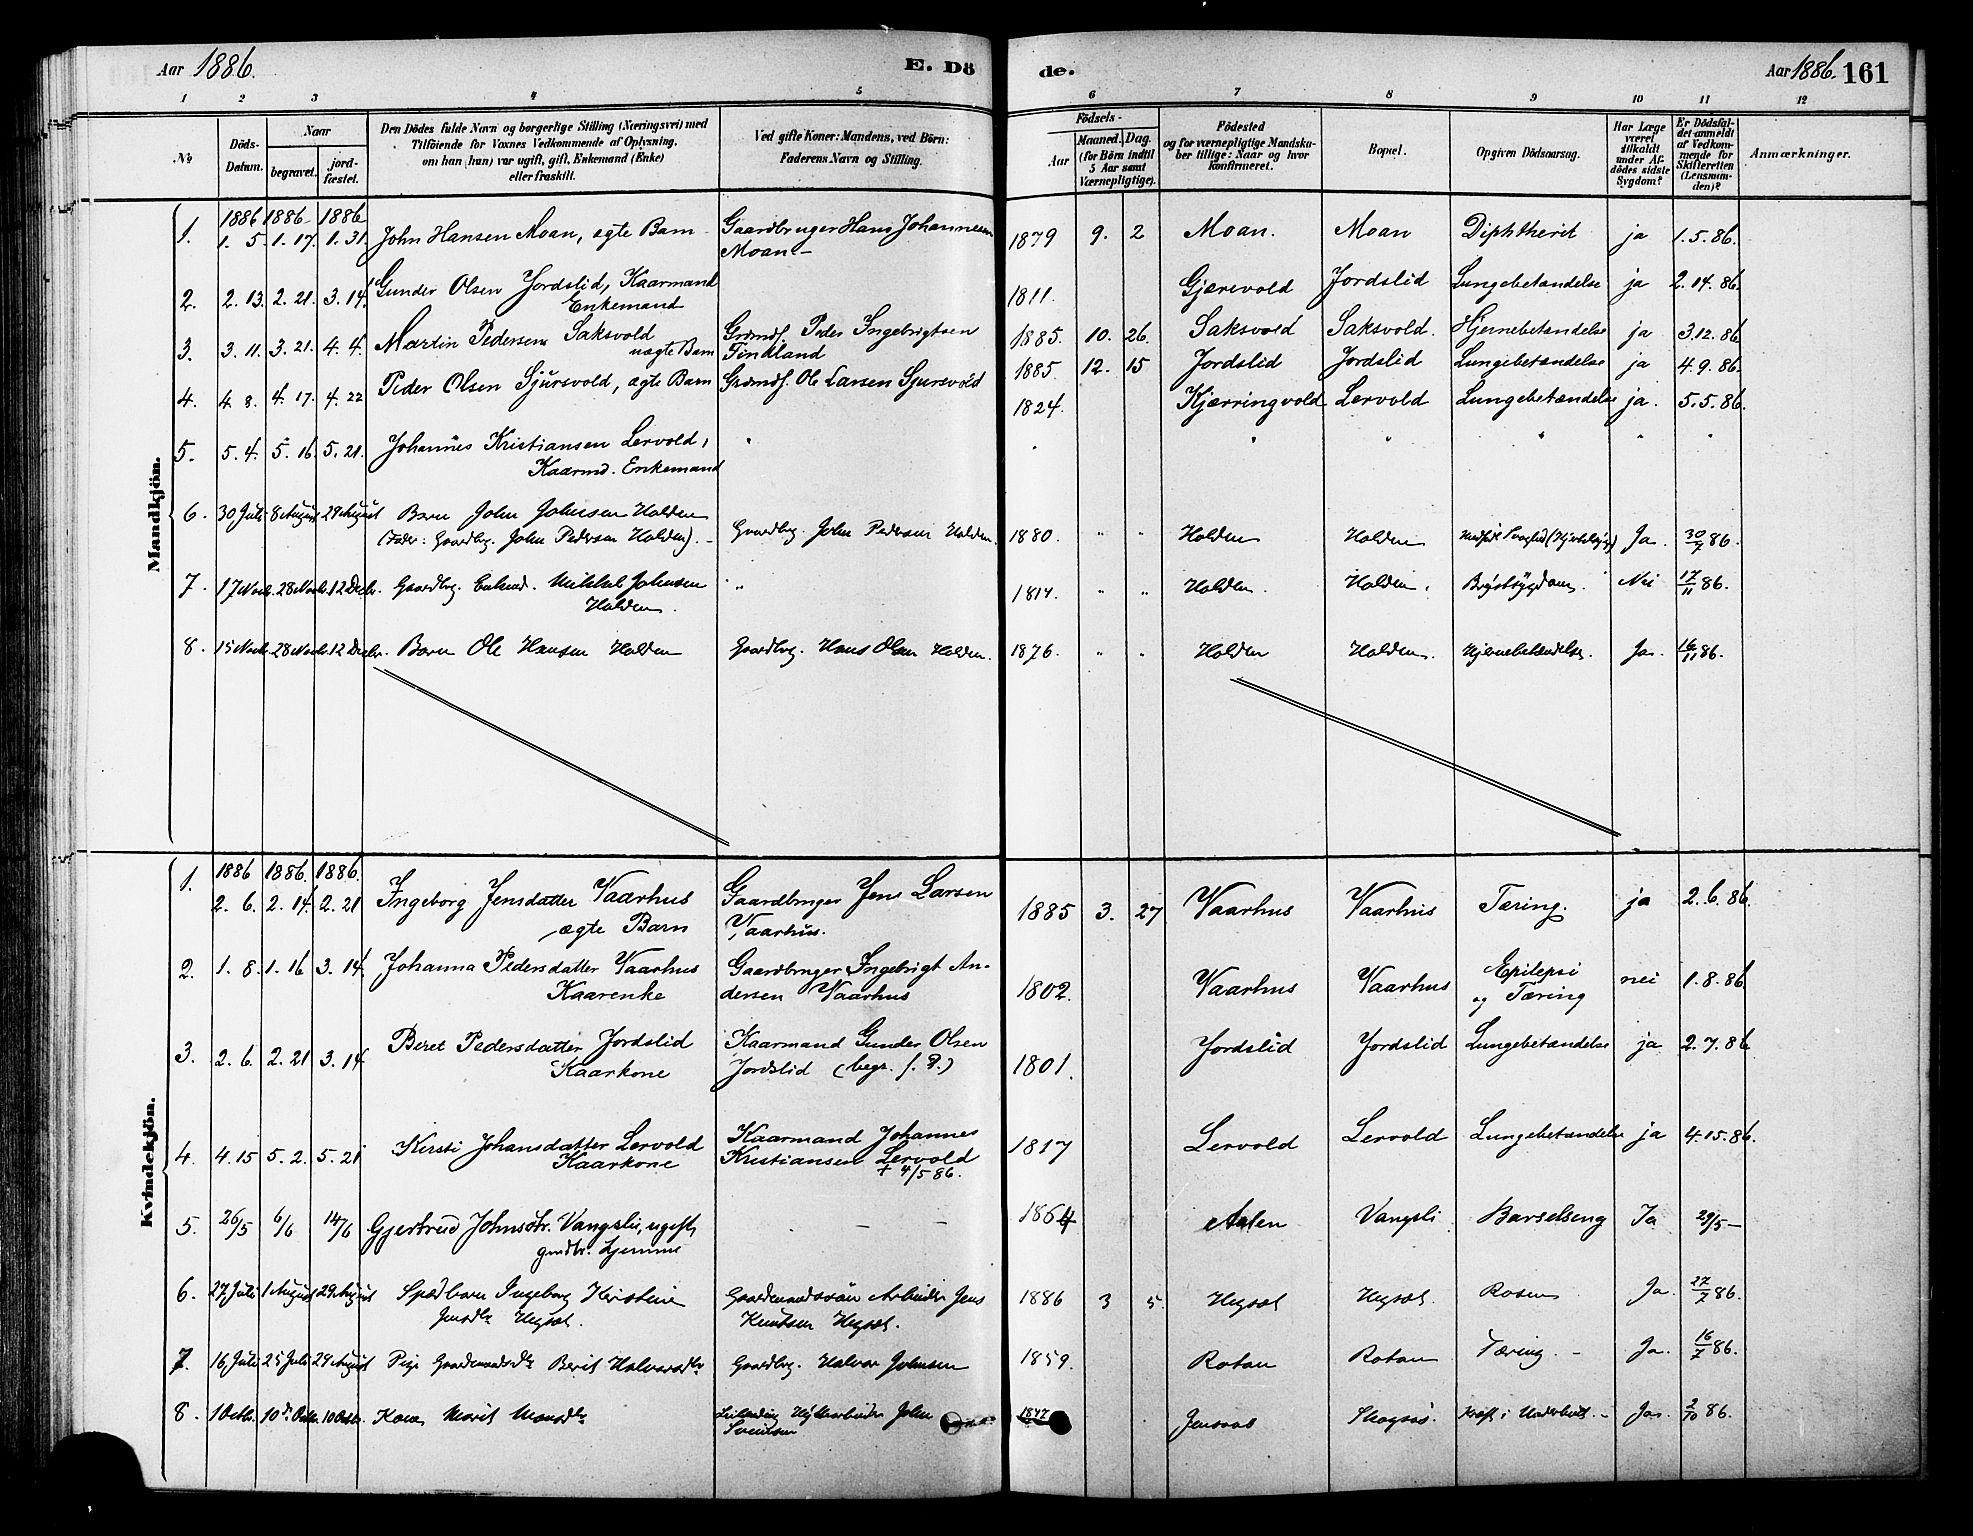 Aar 1886. E. Dö de. Aar 1886. 161
1 2 3 4 5 6 7 8 9 10 11 12
No. Döds-Datum. Naar begravet. jord-fæstet. Den Dödes fulde Navn og borgerlige Stilling (Næringsvei) med Tilföiende for Voxnes Vedkommende af Oplysning, om han (hun) var ugift, gift, Enkemand (Enke) eller fraskilt. Ved gifte Koner: Mandens, ved Börn: Faderens Navn og Stilling. Födsels- Aar Maaned. Dag. (for Börn indtil 5 Aar samt Værnepligtige). Födested og for værnepligtige Mandskaber tillige: Naar og hvor konfirmeret. Bopæl. Opgiven Dödsaarsag. Har Læge været tilkaldt under Afdödes sidste Sygdom? Er Dödsfaldet anmeldt af Vedkommende for Skifteretten (Lensmanden)? Anmærkninger.
Mandkjön.
1886 1886 1886
1. 1. 5. 1. 17. 1. 31. John Hansen Moan, ægte Barn Gaardbruger Hans Johannesen 1879 9. 2 Moan. Moan Diphtherit ja 1.5.86.
Moan
2. 2. 13. 2. 21. 3. 14. Gunder Olsen Jordslid, Kaarmand 1811. Gjærevold Jordslid Lungebetændelse ja 2.14.86.
Enkemand
3. 3. 11. 3. 21. 4. 4. Martin Pedersen Saksvold Grdmdf. Peder Ingebrigtsen 1885. 10. 26. Saksvold Saksvold. Hjernebetændelse ja 3.12.86.
uægte Barn Finkland
4. 4. 8. 4. 17. 4. 22 Peder Olsen Sjursvold, ægte Barn Grdmdf. Ole Larsen Sjursvold 1885. 12. 15 Jordslid Jordslid Lungebetændelse ja 4.9.86.
1824. Kjærringvold Lervold Lungebetændelse ja. 5.5.86.
5. 5. 4. 5. 16. 5. 21. Johannes Kristiansen Lervold, " " " " " "
Kaarmd. Enkemand
6. 30 Juli 8 August 29 August Barn John Johnsen Holden
(Fader: Gaardbrg. John Pedersen Holden). Gaardbrg. John Pedersen Holden. 1880. " " Holden Holden Ja. 30/7 86.
7. 17 Novbr. 28 Novbr. 12 Decbr. Gaardbrg. Enkmd. Mikkel Johnsen " 1814. " " Holden. Holden. Brystsygdom. Nei 17/11 86.
Holden.
8. 15 Novbr. 28 Novbr. 12 Decbr. Barn Ole Hansen Holden Gaardbrg. Hans Olsen Holden. 1876. " " Holden Holden. Hjernebetændelse. Ja. 16/11 86.
Kvindekjön.
1886 1886. 1886.
1. 2. 6. 2. 14. 2. 21 Ingeborg Jensdatter Vaarhus Gaardbruger Jens Larsen 1885 3. 27 Vaarhus Vaarhus Tæring. ja 2.6.86.
ægte Barn Vaarhus.
2. 1. 8. 1. 16 3. 14. Johanna Pedersdatter Vaarhus Gaardbruger Ingebrigt An- 1802. Vaarhus Vaarhus Epilepsi nei 1.8.86
Kaarenke dersen Vaarhus og Tæring
3. 2. 6. 2. 21 3. 14 Beret Pedersdatter Jordslid Kaarmand Gunder Olsen 1801. Jordslid Jordslid Lungebetændelse ja 2.7.86
Kaarkone Jordslid (begr. s. D.)
4. 4. 15 5. 2. 5. 21 Kirsti Johansdatter Lervold Kaarmand Johannes 1817 Lervold Lervold Lungebetændelse ja 4.15.86.
Kaarkone Kristiansen Lervold
+ 4/5 86.
5. 26/5 6/6 14/6 Gjertrud Johnsdtr. Vangsli, ugift, – – – 1864 Aalen Vangsli Barselseng Ja 29/5 –
6. 27 Juli 1 August 29 August Spædbarn Ingeborg Kristine Gaardmandssøn Arbeider Jens 1886 3 5. Hegset Hegset. Ja. 27/7 86.
Jensdtr Hegset. Knutsen Hegset.
7. 16 Juli 25 Juli 29 August Pige Gaardmandsdtr Berit Halvorsdtr Gaardbrg. Halvor Johnsen 1859. Rotan Rotan Tæring. – Ja. 16/7 86.
8. 1 Octbr. 10de Octbr. 10 Octbr. Kone Marit Monsdtr Hytteabeider John 1847 Kræft i Underlivet. – Ja. 2/10 86.
Sveinsen